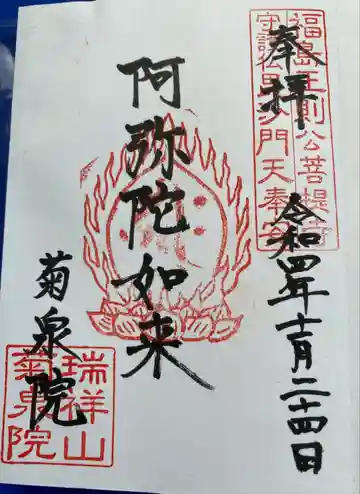 奉拝
福島正則公菩提寺
守護仏毘沙門天奉安
令和四年十二月二十四日
阿弥陀如来
菊泉院
瑞祥山
菊泉院